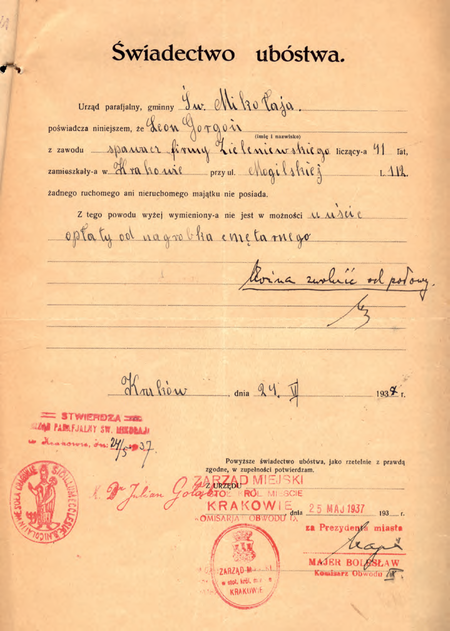 Świadectwo ubóstwa.
Urząd parafjalny, gminny Św. Mikołaja.
poświadcza niniejszem, że Leon Gorgoń
(imię i nazwisko)
z zawodu spawacz firmy Zieleniewskiego liczący-a 41 lat,
zamieszkały-a w Krakowie przy ul. Mogilskiej l. 112
żadnego ruchomego ani nieruchomego majątku nie posiada.
Z tego powodu wyżej wymieniony-a nie jest w możności uiście
opłaty od nagrobka cmętarnego
Można zwolnić od połowy.
Kraków dnia 24. V 1937 r.
STWIERDZA
URZĄD PARAFJALNY ŚW. MIKOŁAJA
w Krakowie, dn. 24/5 1937.
Powyższe świadectwo ubóstwa, jako rzetelnie z prawdą
zgodne, w zupełności potwierdzam.
X. Dr Julian Gołąb
Z URZĘDU
ZARZĄD MIEJSKI
W STOŁ. KRÓL. MIEŚCIE
KRAKOWIE
KOMISARJA OBWODU
dnia 25 MAJ 1937 193 r.
za Prezydenta miasta
MAJER BOLESŁAW
Komisarz Obwodu
ZARZĄD M
w stoł. król. m
KRAKOWIE